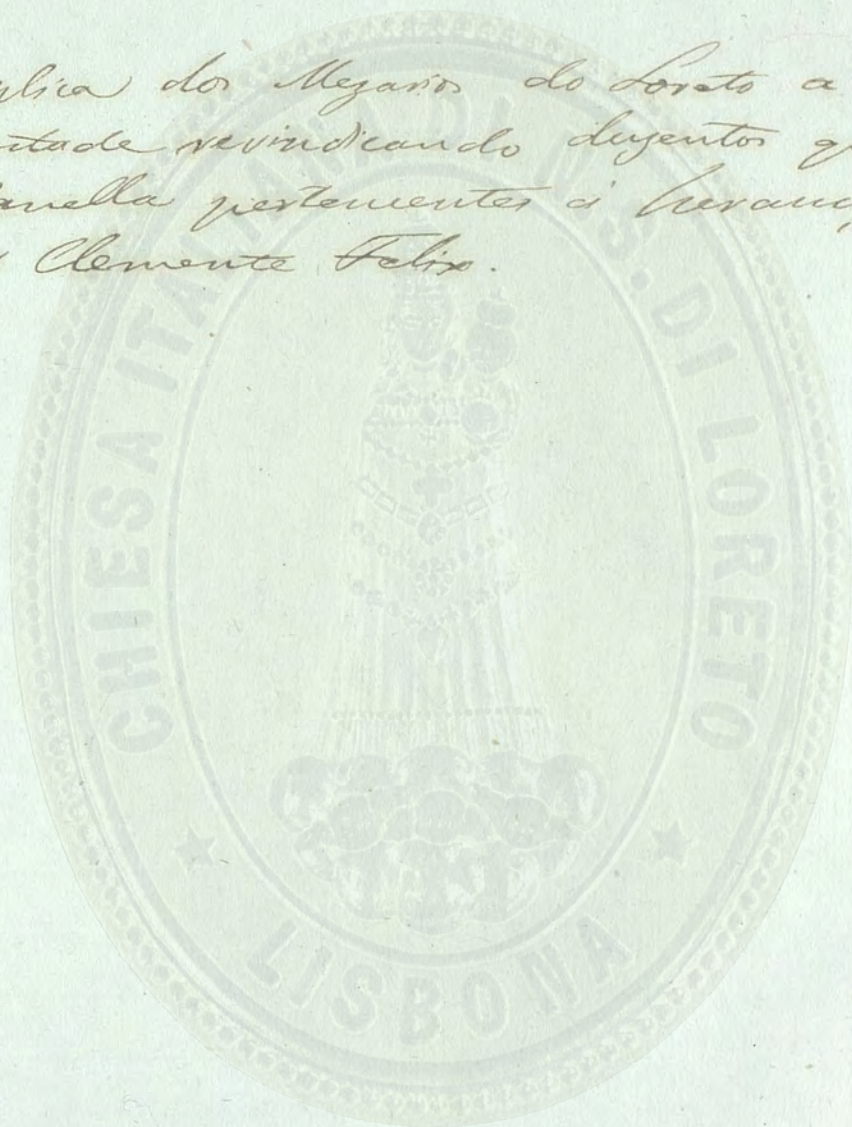 plica dos Mezarios do Loreto a
stade revindicando duzentos q
Canella pertencentes á heranç
Clemente Felix.
CHIESA ITALIANA DI N. S. DI LORETO
LISBONA